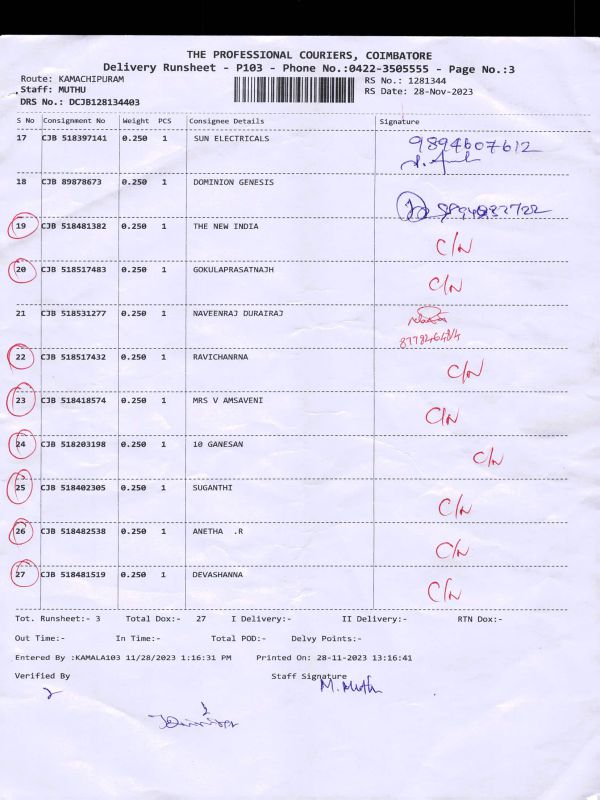 THE PROFESSIONAL COURIERS, COIMBATORE
Delivery Runsheet - P103 - Phone No.:0422-3505555 - Page No.:3
Route: KAMACHIPURAM RS No.: 1281344
Staff: MUTHU RS Date: 28-Nov-2023
DRS No.: DCJB128134403
S No Consignment No Weight PCS Consignee Details Signature
17 CJB 518397141 0.250 1 SUN ELECTRICALS 9894607612
18 CJB 89878673 0.250 1 DOMINION GENESIS
19 CJB 518481382 0.250 1 THE NEW INDIA C/N
20 CJB 518517483 0.250 1 GOKULAPRASATNAJH C/N
21 CJB 518531277 0.250 1 NAVEENRAJ DURAIRAJ
22 CJB 518517432 0.250 1 RAVICHANRNA C/N
23 CJB 518418574 0.250 1 MRS V AMSAVENI C/N
24 CJB 518203198 0.250 1 10 GANESAN C/N
25 CJB 518402305 0.250 1 SUGANTHI C/N
26 CJB 518482538 0.250 1 ANETHA .R C/N
27 CJB 518481519 0.250 1 DEVASHANNA C/N
Tot. Runsheet:- 3 Total Dox:- 27 I Delivery:- II Delivery:- RTN Dox:-
Out Time:- In Time:- Total POD:- Delvy Points:-
Entered By :KAMALA103 11/28/2023 1:16:31 PM Printed On: 28-11-2023 13:16:41
Verified By Staff Signature
M. Muthu